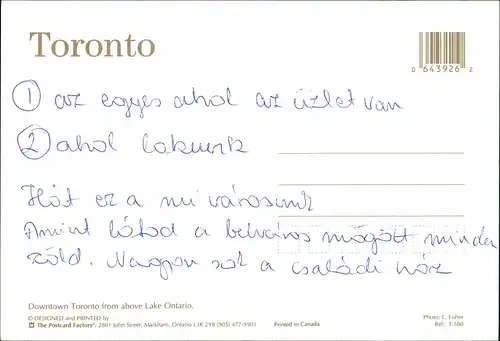 Toronto
0 643926 2
① az egyes ahol az üzlet van
② ahol lakunk
Hát ez a mi városunk
Amint látod a belváros mögött minden
zöld. Nagyon sok a családi ház
Downtown Toronto from above Lake Ontario.
© DESIGNED and PRINTED by
The Postcard Factory®, 2801 John Street, Markham, Ontario L3R 2Y8 (905) 477-9903
Printed in Canada
Photo: L. Fisher
Ref: T-580